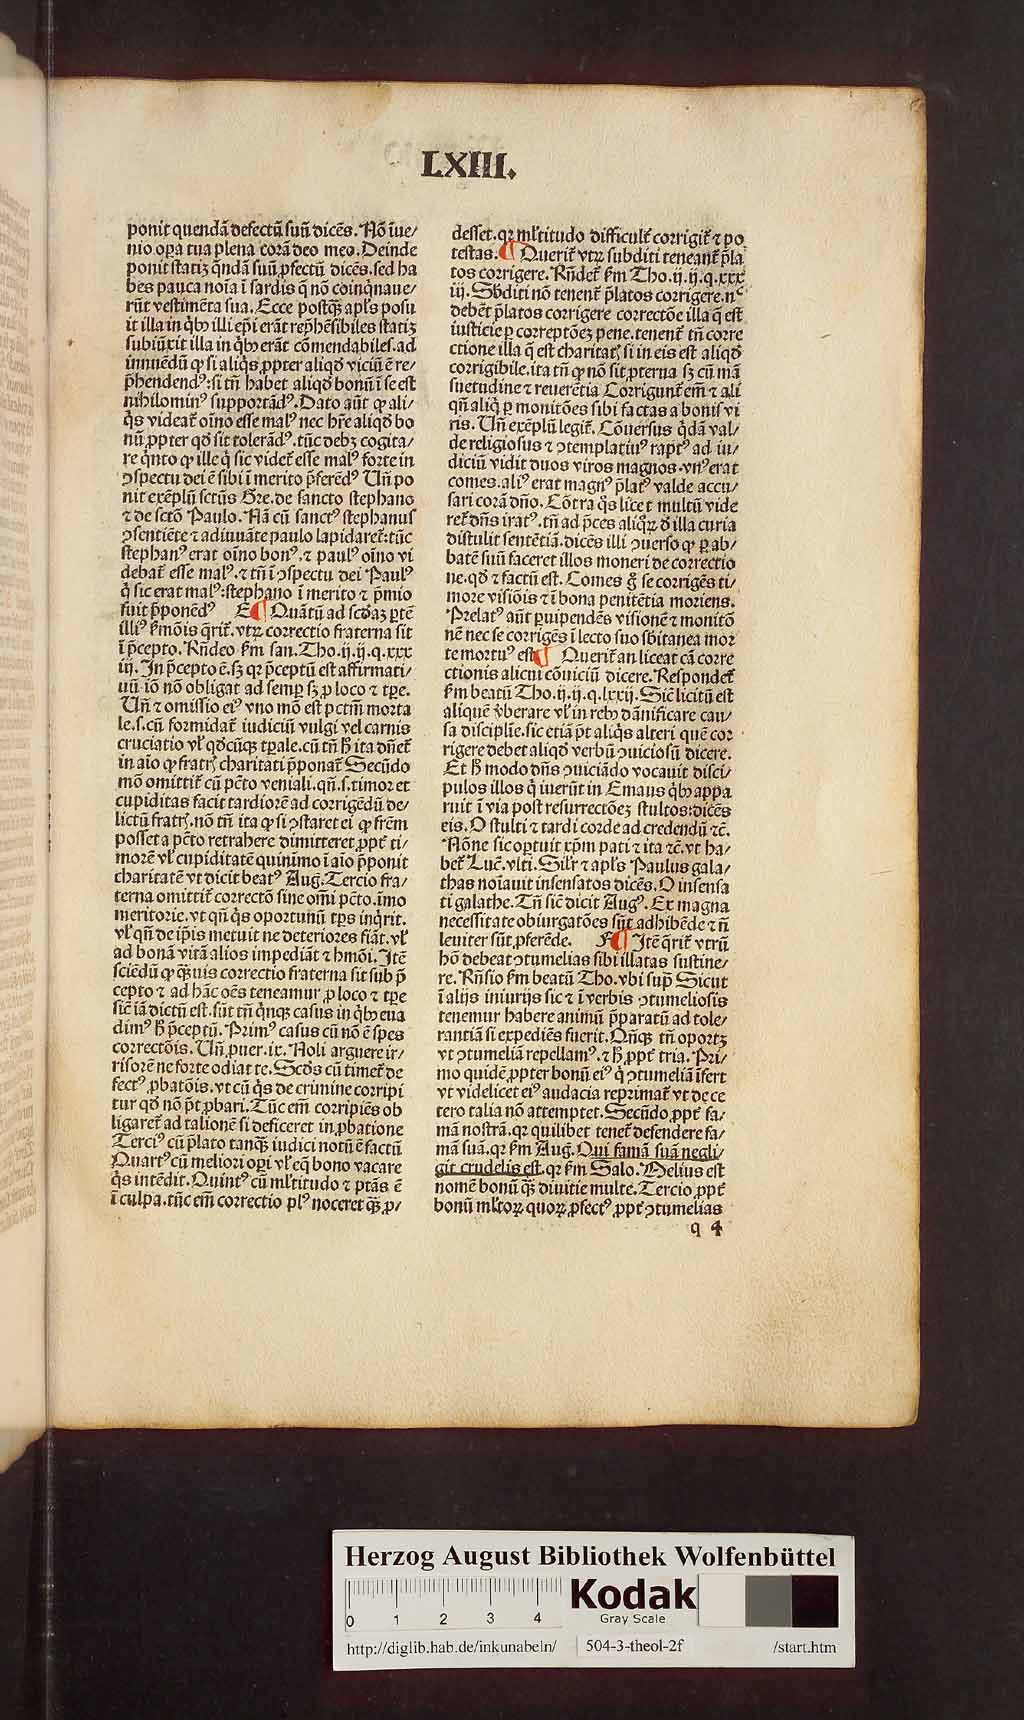 LXIII.
ponit quendã defectũ suũ dicẽs. Nõ ĩue/
nio oꝑa tua plena corã deo meo. Deinde
ponit statiꝫ qñdã suũ ꝓfectũ dicẽs. sed ha
bes pauca noĩa ĩ sardis q̃ nõ coinq̃naue/
rũt vestimẽta sua. Ecce postqꝫ apl̃s posu
it illa in qͥbꝫ illi ep̃i erãt rep̃hẽsibiles statiꝫ
subiũxit illa in qͥbꝫ erãt cõmendabiles. ad
innuẽdũ ꝙ si aliqͥs ꝓpter aliqd̃ viciũ ẽ re/
p̃hendendꝰ: si tñ habet aliqd̃ bonũ ĩ se est
nihilominꝰ supportãdꝰ. Dato aũt ꝙ ali/
qͥs videat̃ oĩno esse malꝰ nec hr̃e aliqd̃ bo
nũ ꝓpter qd̃ sit tolerãdꝰ. tũc debꝫ cogita/
re qͣnto ꝙ ille qͥ sic videt̃ esse malꝰ forte in
ꝯspectu dei ẽ sibi ĩ merito p̃ferẽdꝰ Uñ po
nit exẽplũ sctũs Gre. de sancto stephano
⁊ de sctõ Paulo. Nã cũ sanctꝰ stephanus
ꝯsentiẽte ⁊ adiuuãte paulo lapidaret̃: tũc
stephanꝰ erat oĩno bonꝰ. ⁊ paulꝰ oĩno vi
debat̃ esse malꝰ. ⁊ tñ ĩ ꝯspectu dei Paulꝰ
qͥ sic erat malꝰ: stephano ĩ merito ⁊ p̃mio
fuit p̃ponẽdꝰ E ¶ Quãtũ ad scd̃aꝫ ꝑtẽ
illiꝰ ẞmõis q̃rit̃. vtꝝ correctio fraterna sit
ĩ p̃cepto. Rñdeo ẞm san. Tho. ij. ij. q. xxx
iij. In p̃cepto ẽ. sꝫ qꝛ p̃ceptũ est affirmati/
uũ. iõ nõ obligat ad semꝑ sꝫ ꝓ loco ⁊ tꝑe.
Uñ ⁊ omissio eiꝰ vno mõ est pctm̃ morta
le. s. cũ formidat̃ iudiciũ vulgi vel carnis
cruciatio vl̃ qd̃cũqꝫ tꝑale. cũ tñ h̃ ita dñet̃
in aĩo ꝙ frat̃ charitati p̃ponat̃ Secũdo
mõ omittit̃ cũ pc̃to veniali. qñ. s. timor et
cupiditas facit tardiorẽ ad corrigẽdũ de/
lictũ fratꝝ. nõ tñ ita ꝙ si ꝯstaret ei ꝙ fr̃em
posset a pc̃to retrahere dimitteret ꝓpt̃ ti/
morẽ vl̃ cupiditatẽ quinimo ĩ aĩo p̃ponit
charitatẽ vt dicit beatꝰ Aug̃. Tercio fra/
terna omittit̃ correctõ sine om̃i pc̃to. ĩmo
meritorie. vt qñ qͥs oportunũ tp̃s inq̃rit.
vl̃ qñ de ip̃is metuit ne deteriores fiãt. vl̃
ad bonã vitã alios impediãt ⁊ hmõi. Itẽ
sciẽdũ ꝙ qͣꝫuis correctio fraterna sit sub p̃
cepto ⁊ ad hãc oẽs teneamur ꝓ loco ⁊ tꝑe
siẽ iã dictũ est. sũt tñ qͥnqꝫ casus in qͥbꝫ eua
dimꝰ h̃ p̃ceptũ. Primꝰ casus cũ nõ ẽ spes
correctõis. Uñ ꝓuer. ix. Noli arguere ir/
risorẽ ne forte odiat te. Scd̃s cũ timet̃ de
fectꝰ ꝓbatõis. vt cũ qͥs de crimine corripi
tur qd̃ nõ p̃t ꝓbari. Tũc em̃ corripiẽs ob
ligaret̃ ad talionẽ si deficeret in ꝓbatione
Terciꝰ cũ p̃lato tanqͣꝫ iudici notũ ẽ factũ
Quartꝰ cũ meliori oꝑi vl̃ eq̃ bono vacare
qͥs intẽdit. Quintꝰ cũ ml̃titudo ⁊ ptãs ẽ
ĩ culpa. tũc em̃ correctio plꝰ noceret qͣꝫ ꝓ/
desset. qꝛ ml̃titudo difficult̃ corrigit̃ ⁊ po
testas. ¶ Querit̃ vtꝝ subditi teneant̃ p̃la
tos corrigere. Rñdet̃ ẞm Tho. ij. ij. q. xxx
iij. Sb̃diti nõ tenent̃ p̃latos corrigere. nͨ
debẽt p̃latos corrigere correctõe illa q̃ est
iusticie ꝑ correptõeꝫ pene. tenent̃ tñ corre
ctione illa q̃ est charitat̃ si in eis est aliqd̃
corrigibile. ita tñ ꝙ nõ sit ꝓterua sꝫ cũ mã
suetudine ⁊ reuerẽtia Corrigunt̃ em̃ ⁊ ali
qñ aliqͥ ꝑ monitões sibi factas a bonis vi
ris. Uñ exẽplũ legit̃. Cõuersus qͥdã val/
de religiosus ⁊ ꝯtemplatiuꝰ raptꝰ ad iu/
diciũ vidit duos viros magnos. vnꝰ erat
comes. aliꝰ erat magnꝰ p̃latꝰ valde accu/
sari corã dño. Cõtra qͥs licet multũ vide
ret̃ dñs iratꝰ. tñ ad p̃ces aliqꝝ d̃ illa curia
distulit sentẽtiã. dicẽs illi ꝯuerso ꝙ ꝑ ab/
batẽ suũ faceret illos moneri de correctio
ne. qd̃ ⁊ factũ est. Comes g̃ se corrigẽs ti/
more visiõis ⁊ ĩ bona penitẽtia moriens.
Prelatꝰ aũt ꝑuipendẽs visionẽ ⁊ monitõ
nẽ nec se corrigẽs ĩ lecto suo sb̃itanea mor
te mortuꝰ est ¶ Querit̃ an liceat cã corre
ctionis alicui cõuiciũ dicere. Respondet̃
ẞm beatũ Tho. ij. ij. q. lxxij. Siẽ licitũ est
aliquẽ v̓berare vl̃ in rebꝫ dãnificare cau/
sa discipliẽ. sic etiã p̃t aliqͥs alteri quẽ cor
rigere debet aliqd̃ verbũ ꝯuiciosũ dicere.
Et h̃ modo dñs ꝯuiciãdo vocauit disci/
pulos illos qͥ iuerũt in Emaus qͥbꝫ appa
ruit ĩ via post resurrectõeꝫ stultos: dicẽs
eis. O stulti ⁊ tardi corde ad credendũ ⁊c̃.
Nõne sic oꝑtuit xp̃m pati ⁊ ita ⁊c̃. vt ha/
bet̃ Luc̃. vlti. Sil̃r ⁊ apl̃s Paulus gala/
thas noĩauit insensatos dicẽs. O insensa
ti galathe. Tñ siẽ dicit Augꝰ. Ex magna
necessitate obiurgatões sũt adhibẽde ⁊ ñ
leuiter sũt ꝓferẽde. F ¶ Itẽ q̃rit̃ vtrũ
hõ debeat ꝯtumelias sibi illatas sustine/
re. Rñsio ẞm beatũ Tho. vbi sup̃ Sicut
ĩ alijs iniurijs sic ⁊ ĩ verbis ꝯtumeliosis
tenemur habere animũ p̃paratũ ad tole/
rantiã si expediẽs fuerit. Qñqꝫ tñ oportꝫ
vt ꝯtumeliã repellamꝰ. ⁊ h̃ ꝓpt̃ tria. Pri/
mo quidẽ ꝓpter bonũ eiꝰ qͥ ꝯtumeliã ĩfert
vt videlicet eiꝰ audacia reprimat̃ vt de ce
tero talia nõ attemptet. Secũdo ꝓpt̃ fa/
mã nostrã. qꝛ quilibet tenet̃ defendere fa/
mã suã. qꝛ ẞm Aug̃. Qui famã suã negli/
git crudelis est. qꝛ ẞm Salo. Melius est
nomẽ bonũ qͣꝫ diuitie multe. Tercio ꝓpt̃
bonũ ml̃toꝝ quoꝝ ꝓfectꝰ ꝓpt̃ ꝯtumelias
q 4
Herzog August Bibliothek Wolfenbüttel
0 1 2 3 4
Kodak
Gray Scale
http://diglib.hab.de/inkunabeln/ 504-3-theol-2f /start.htm